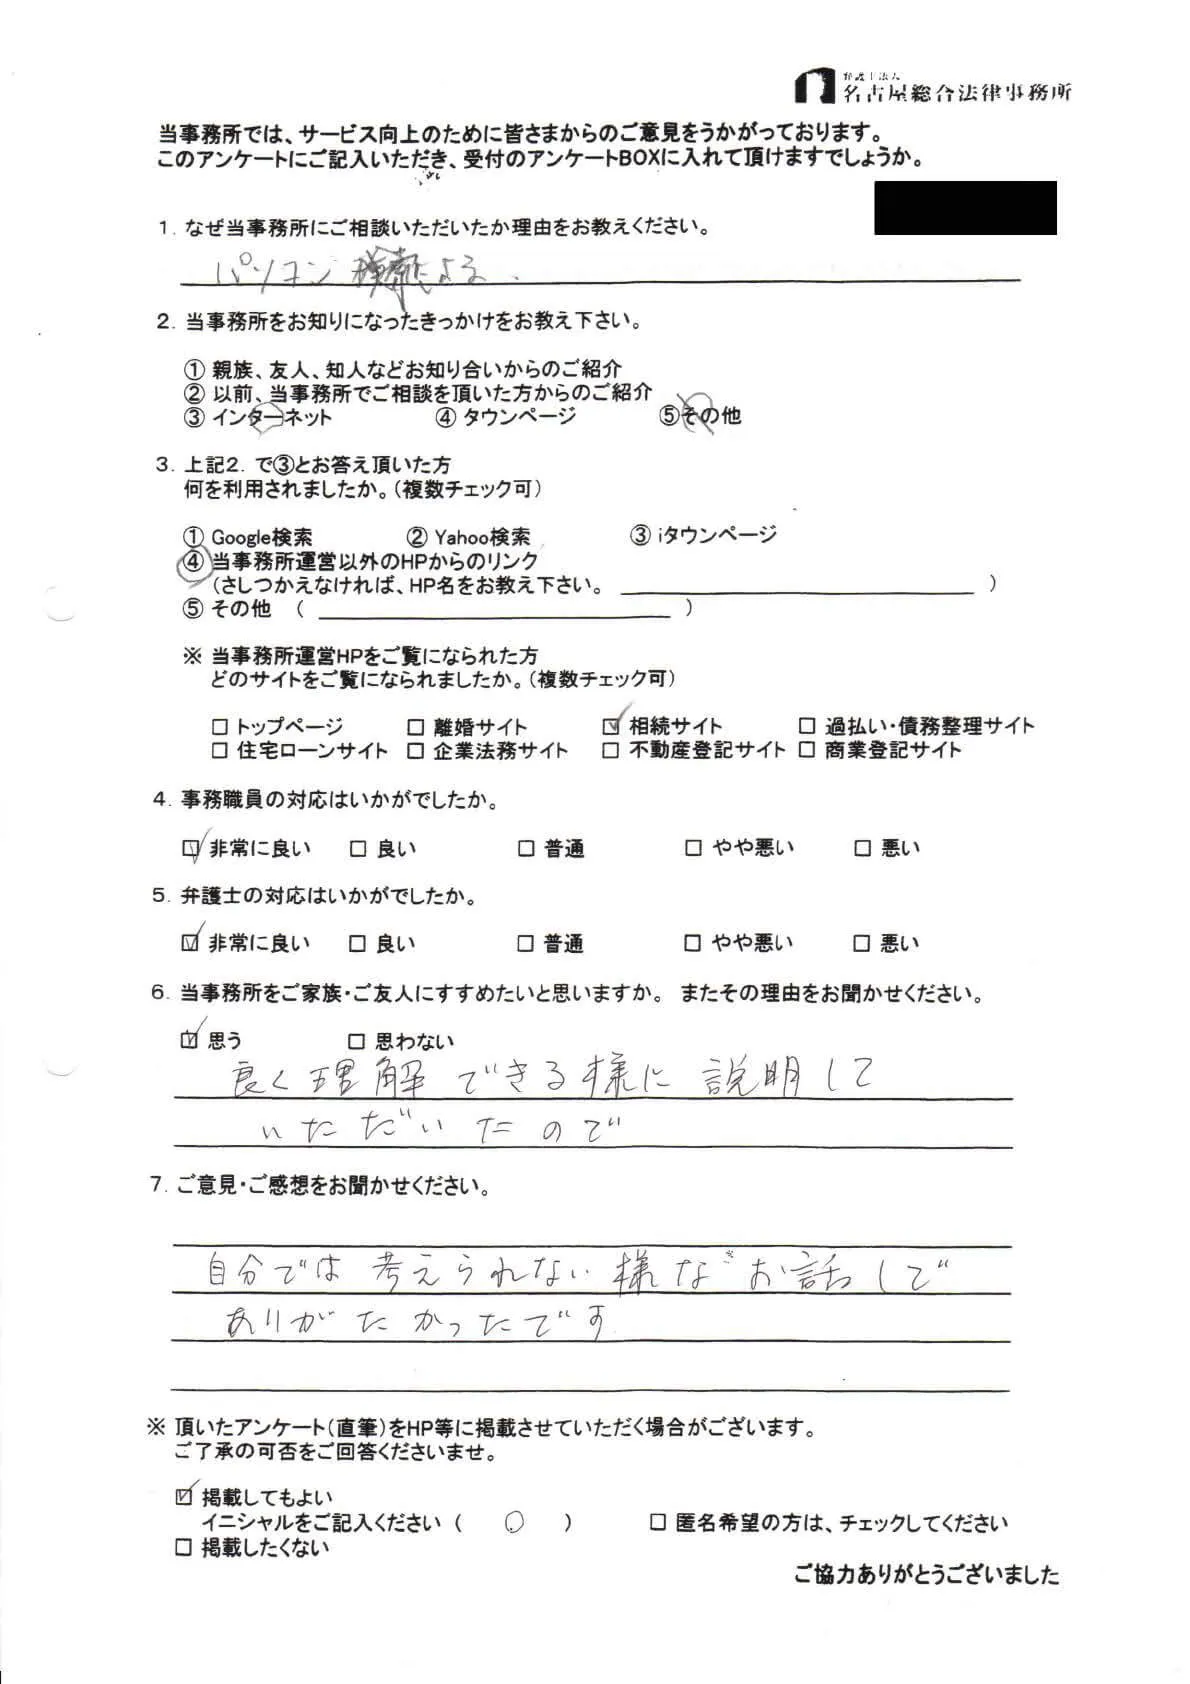 弁護士法人
名古屋総合法律事務所
当事務所では、サービス向上のために皆さまからのご意見をうかがっております。
このアンケートにご記入いただき、受付のアンケートBOXに入れて頂けますでしょうか。
1. なぜ当事務所にご相談いただいたか理由をお教えください。
パソコン検索による.
2. 当事務所をお知りになったきっかけをお教え下さい。
① 親族、友人、知人などお知り合いからのご紹介
② 以前、当事務所でご相談を頂いた方からのご紹介
③ インターネット ④ タウンページ ⑤その他
3. 上記2. で③とお答え頂いた方
何を利用されましたか。(複数チェック可)
① Google検索 ② Yahoo検索 ③ iタウンページ
④ 当事務所運営以外のHPからのリンク
(さしつかえなければ、HP名をお教え下さい。 )
⑤ その他 ( )
※ 当事務所運営HPをご覧になられた方
どのサイトをご覧になられましたか。(複数チェック可)
□ トップページ □ 離婚サイト ☑ 相続サイト □ 過払い・債務整理サイト
□ 住宅ローンサイト □ 企業法務サイト □ 不動産登記サイト □ 商業登記サイト
4. 事務職員の対応はいかがでしたか。
☑ 非常に良い □ 良い □ 普通 □ やや悪い □ 悪い
5. 弁護士の対応はいかがでしたか。
☑ 非常に良い □ 良い □ 普通 □ やや悪い □ 悪い
6. 当事務所をご家族・ご友人にすすめたいと思いますか。 またその理由をお聞かせください。
☑ 思う □ 思わない
良く理解できる様に説明して
いただいたので
7. ご意見・ご感想をお聞かせください。
自分では考えられない様なお話しで
ありがたかったです
※ 頂いたアンケート(直筆)をHP等に掲載させていただく場合がございます。
ご了承の可否をご回答くださいませ。
☑ 掲載してもよい
イニシャルをご記入ください ( O. ) □ 匿名希望の方は、チェックしてください
□ 掲載したくない
ご協力ありがとうございました